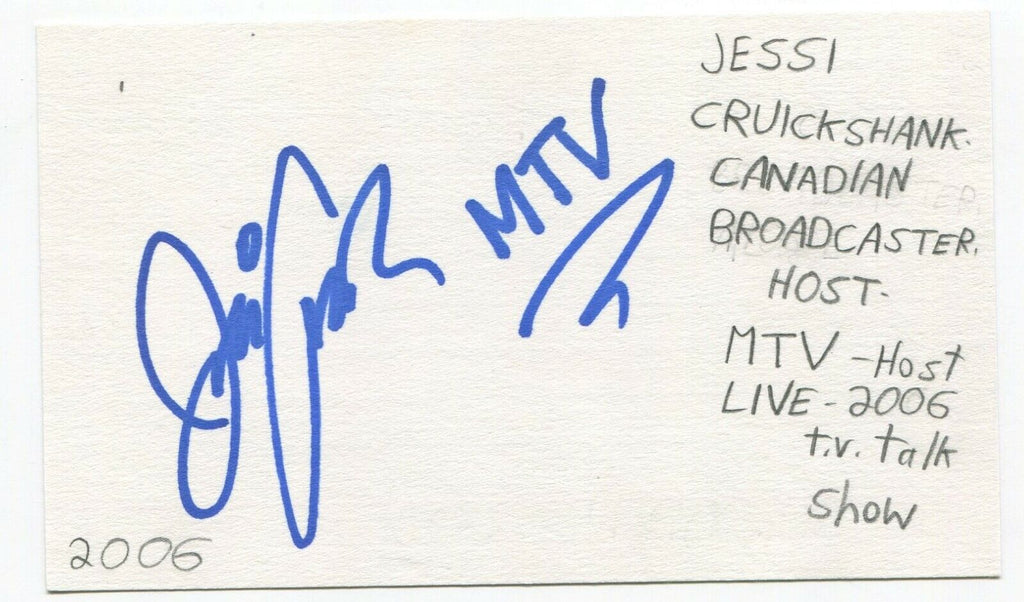 Jessi Cruickshank
MTV
JESSI
CRUICKSHANK.
CANADIAN
BROADCASTER.
HOST-
MTV - Host
LIVE - 2006
t.v. talk
show
2006